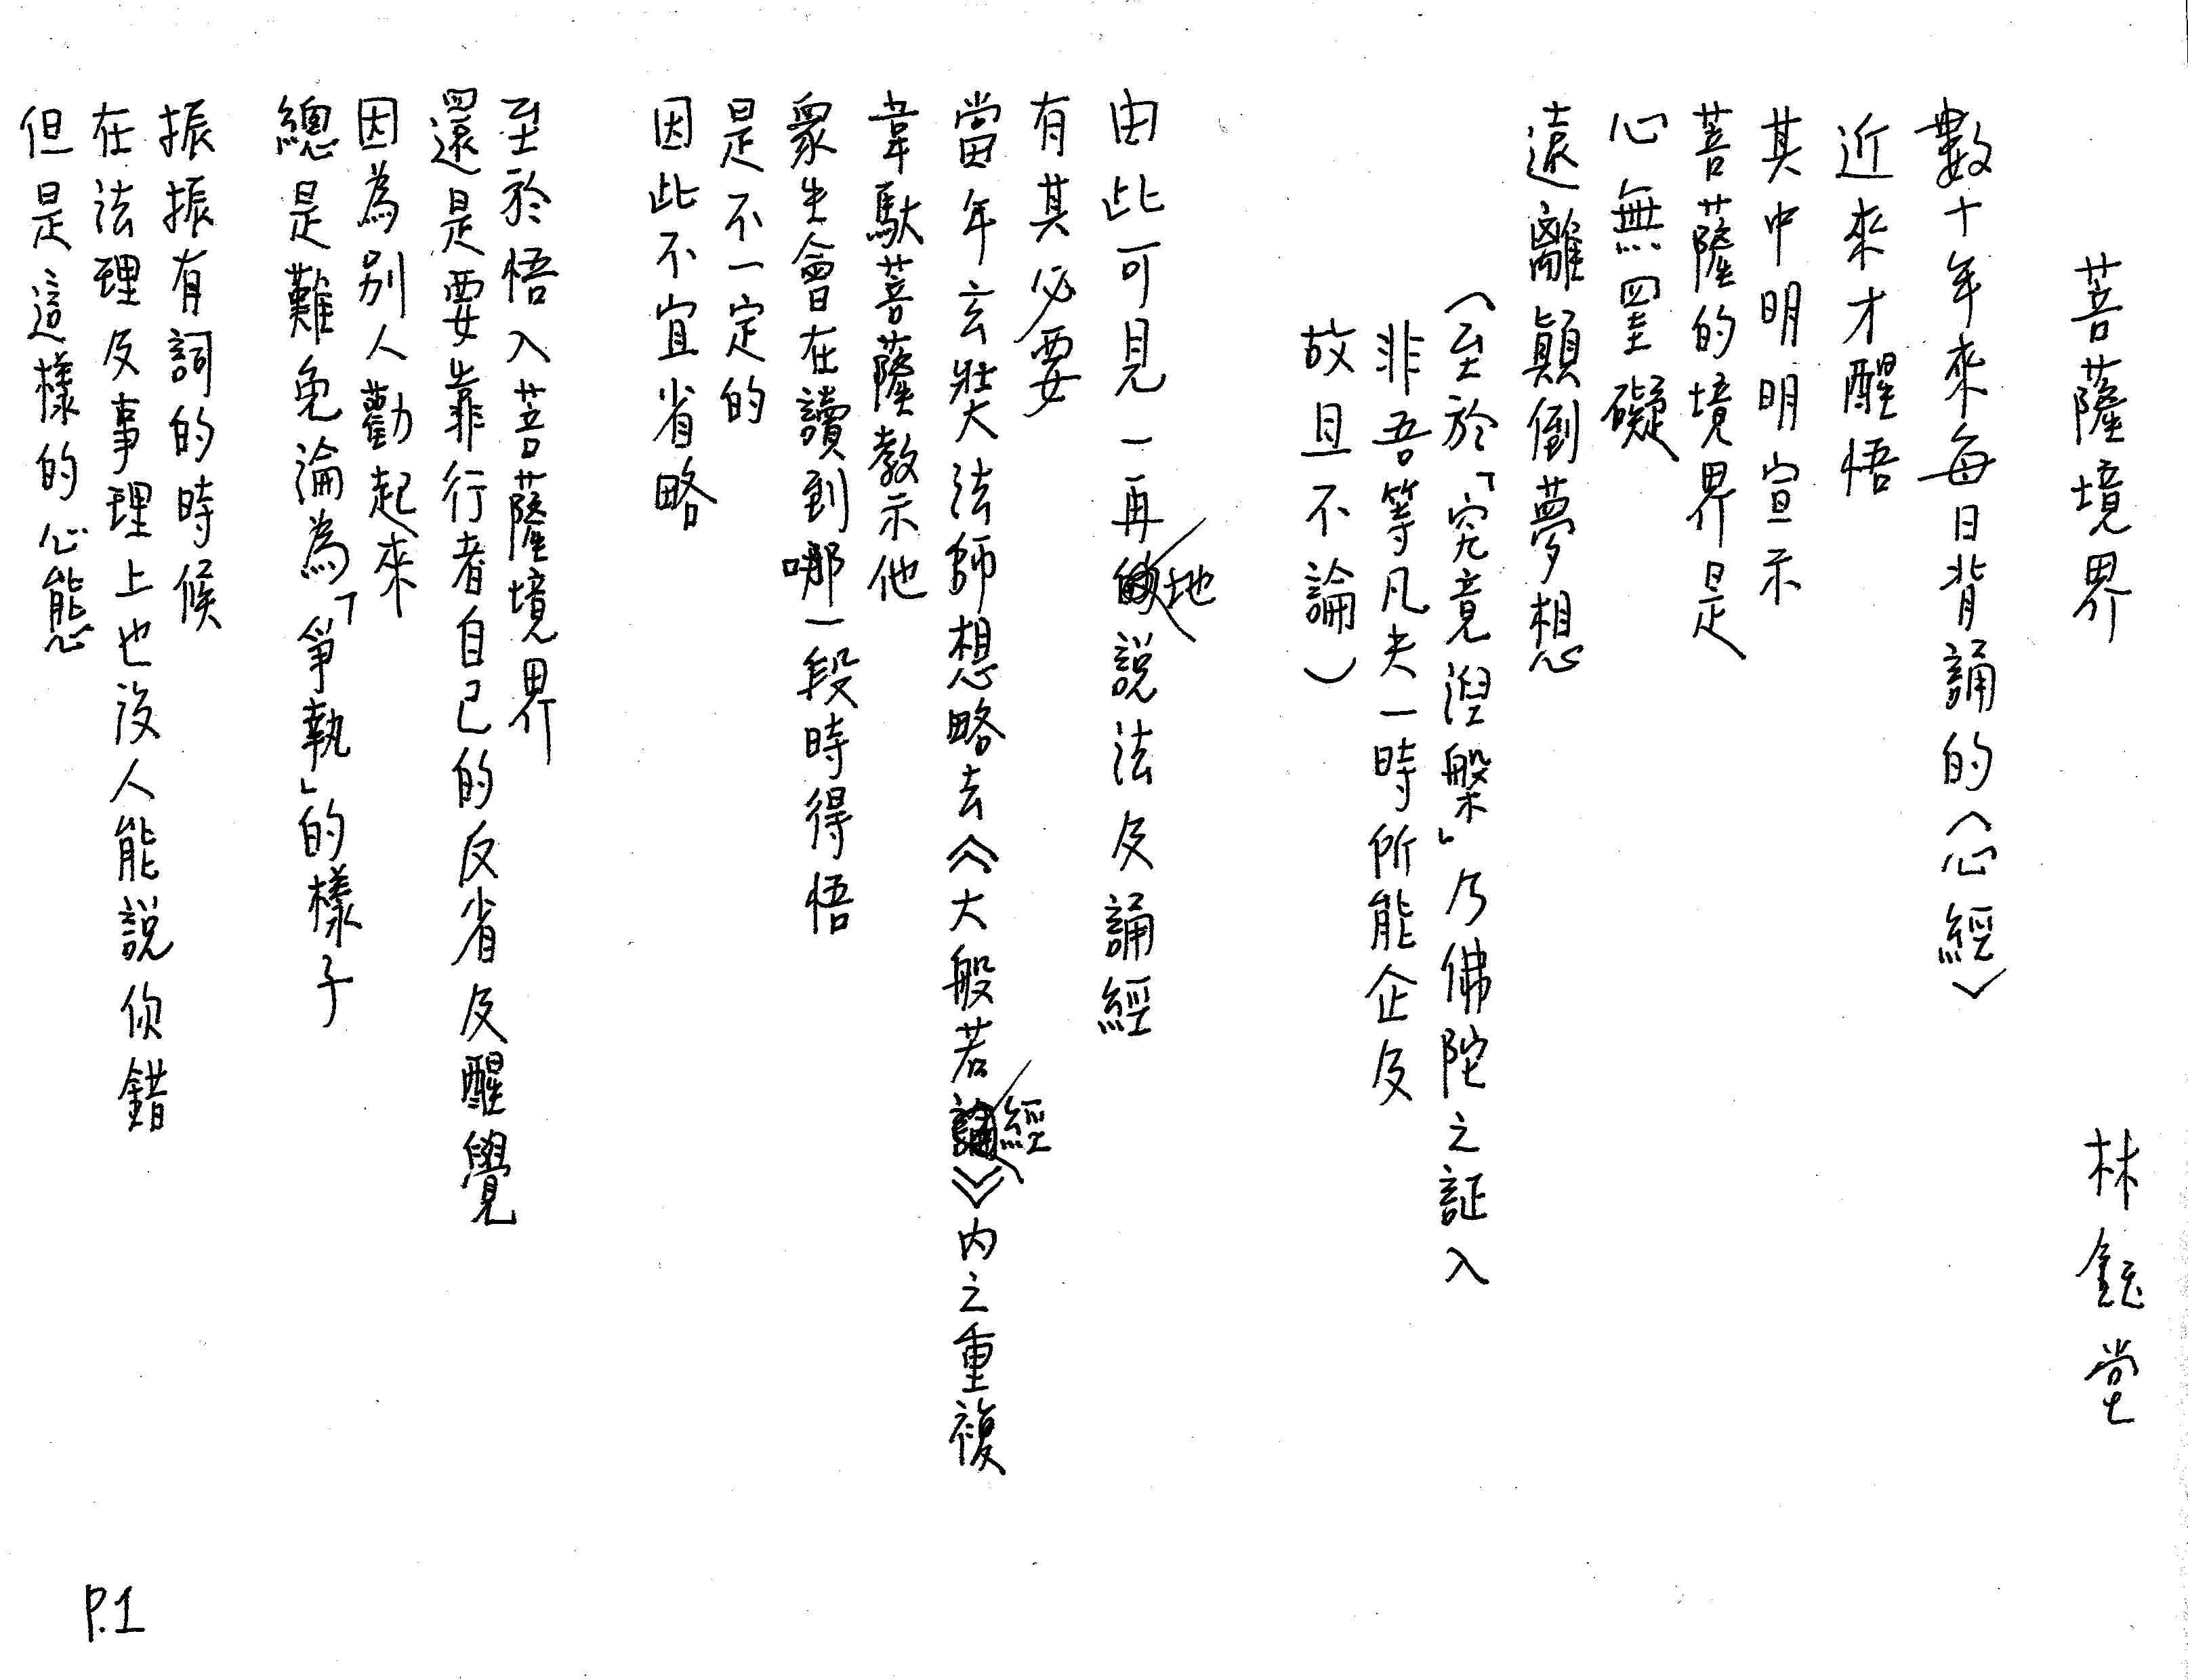 菩薩境界　　林鈺堂
數十年來每日背誦的〈心經〉
近來才醒悟
其中明明宣示
菩薩的境界是
心無罣礙
遠離顛倒夢想
（至於「究竟涅槃」乃佛陀之証入
非吾等凡夫一時所能企及
故且不論）
由此可見一再地說法及誦經
有其必要
當年玄奘大法師想略去《大般若經》內之重複
韋馱菩薩教示他
眾生會在讀到哪一段時得悟
是不一定的
因此不宜省略
至於悟入菩薩境界
還是要靠行者自己的反省及醒覺
因為別人勸起來
總是難免淪為「爭執」的樣子
振振有詞的時候
在法理及事理上也沒人能說你錯
但是這樣的心態
P.1